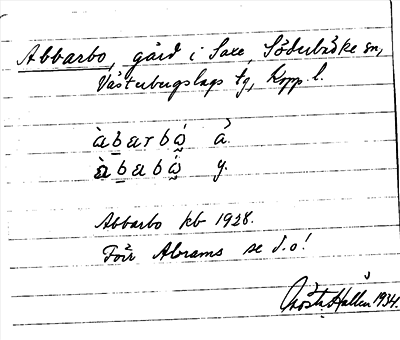 Abbarbo, gård i Saxe, Söderbärke sn,
Västerbergslags tg, Kopp. l.
àbarbå̀ ä.
àbabå̀ y.
Abbarbo kb 1928.
Förr Abrams se d.o!
Gösta Hallén 1934.